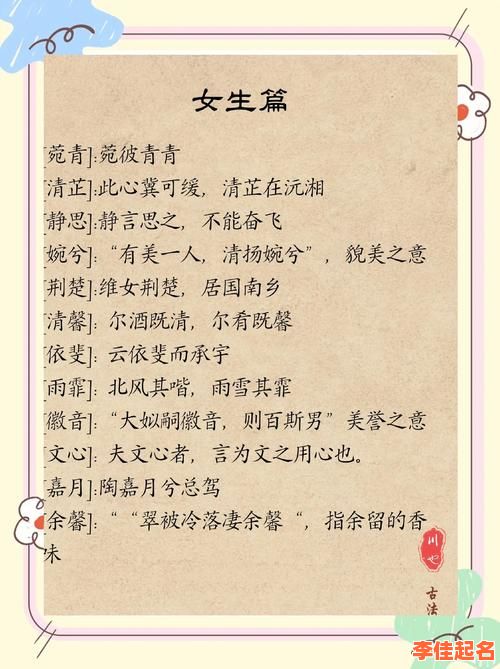 女生篇
[菀青]:菀彼青青
[清芷]:此心冀可缓，清芷在沅湘
[静思]:静言思之，不能奋飞
[婉兮]:“有美一人，清扬婉兮”，貌美之意
[荆楚]:维女荆楚，居国南乡
[清馨]：尔酒既清，尔肴既馨
[依斐]：云依斐而承宇
[雨霏]：北风其喈，雨雪其霏
[徽音]:“大姒嗣徽音，则百斯男”美誉之意
[文心]：夫文心者，言为文之用心也。
[嘉月]:陶嘉月兮总驾
[余馨]：““翠被冷落凄余馨“，指余留的香
味
川也
古法
李佳起名